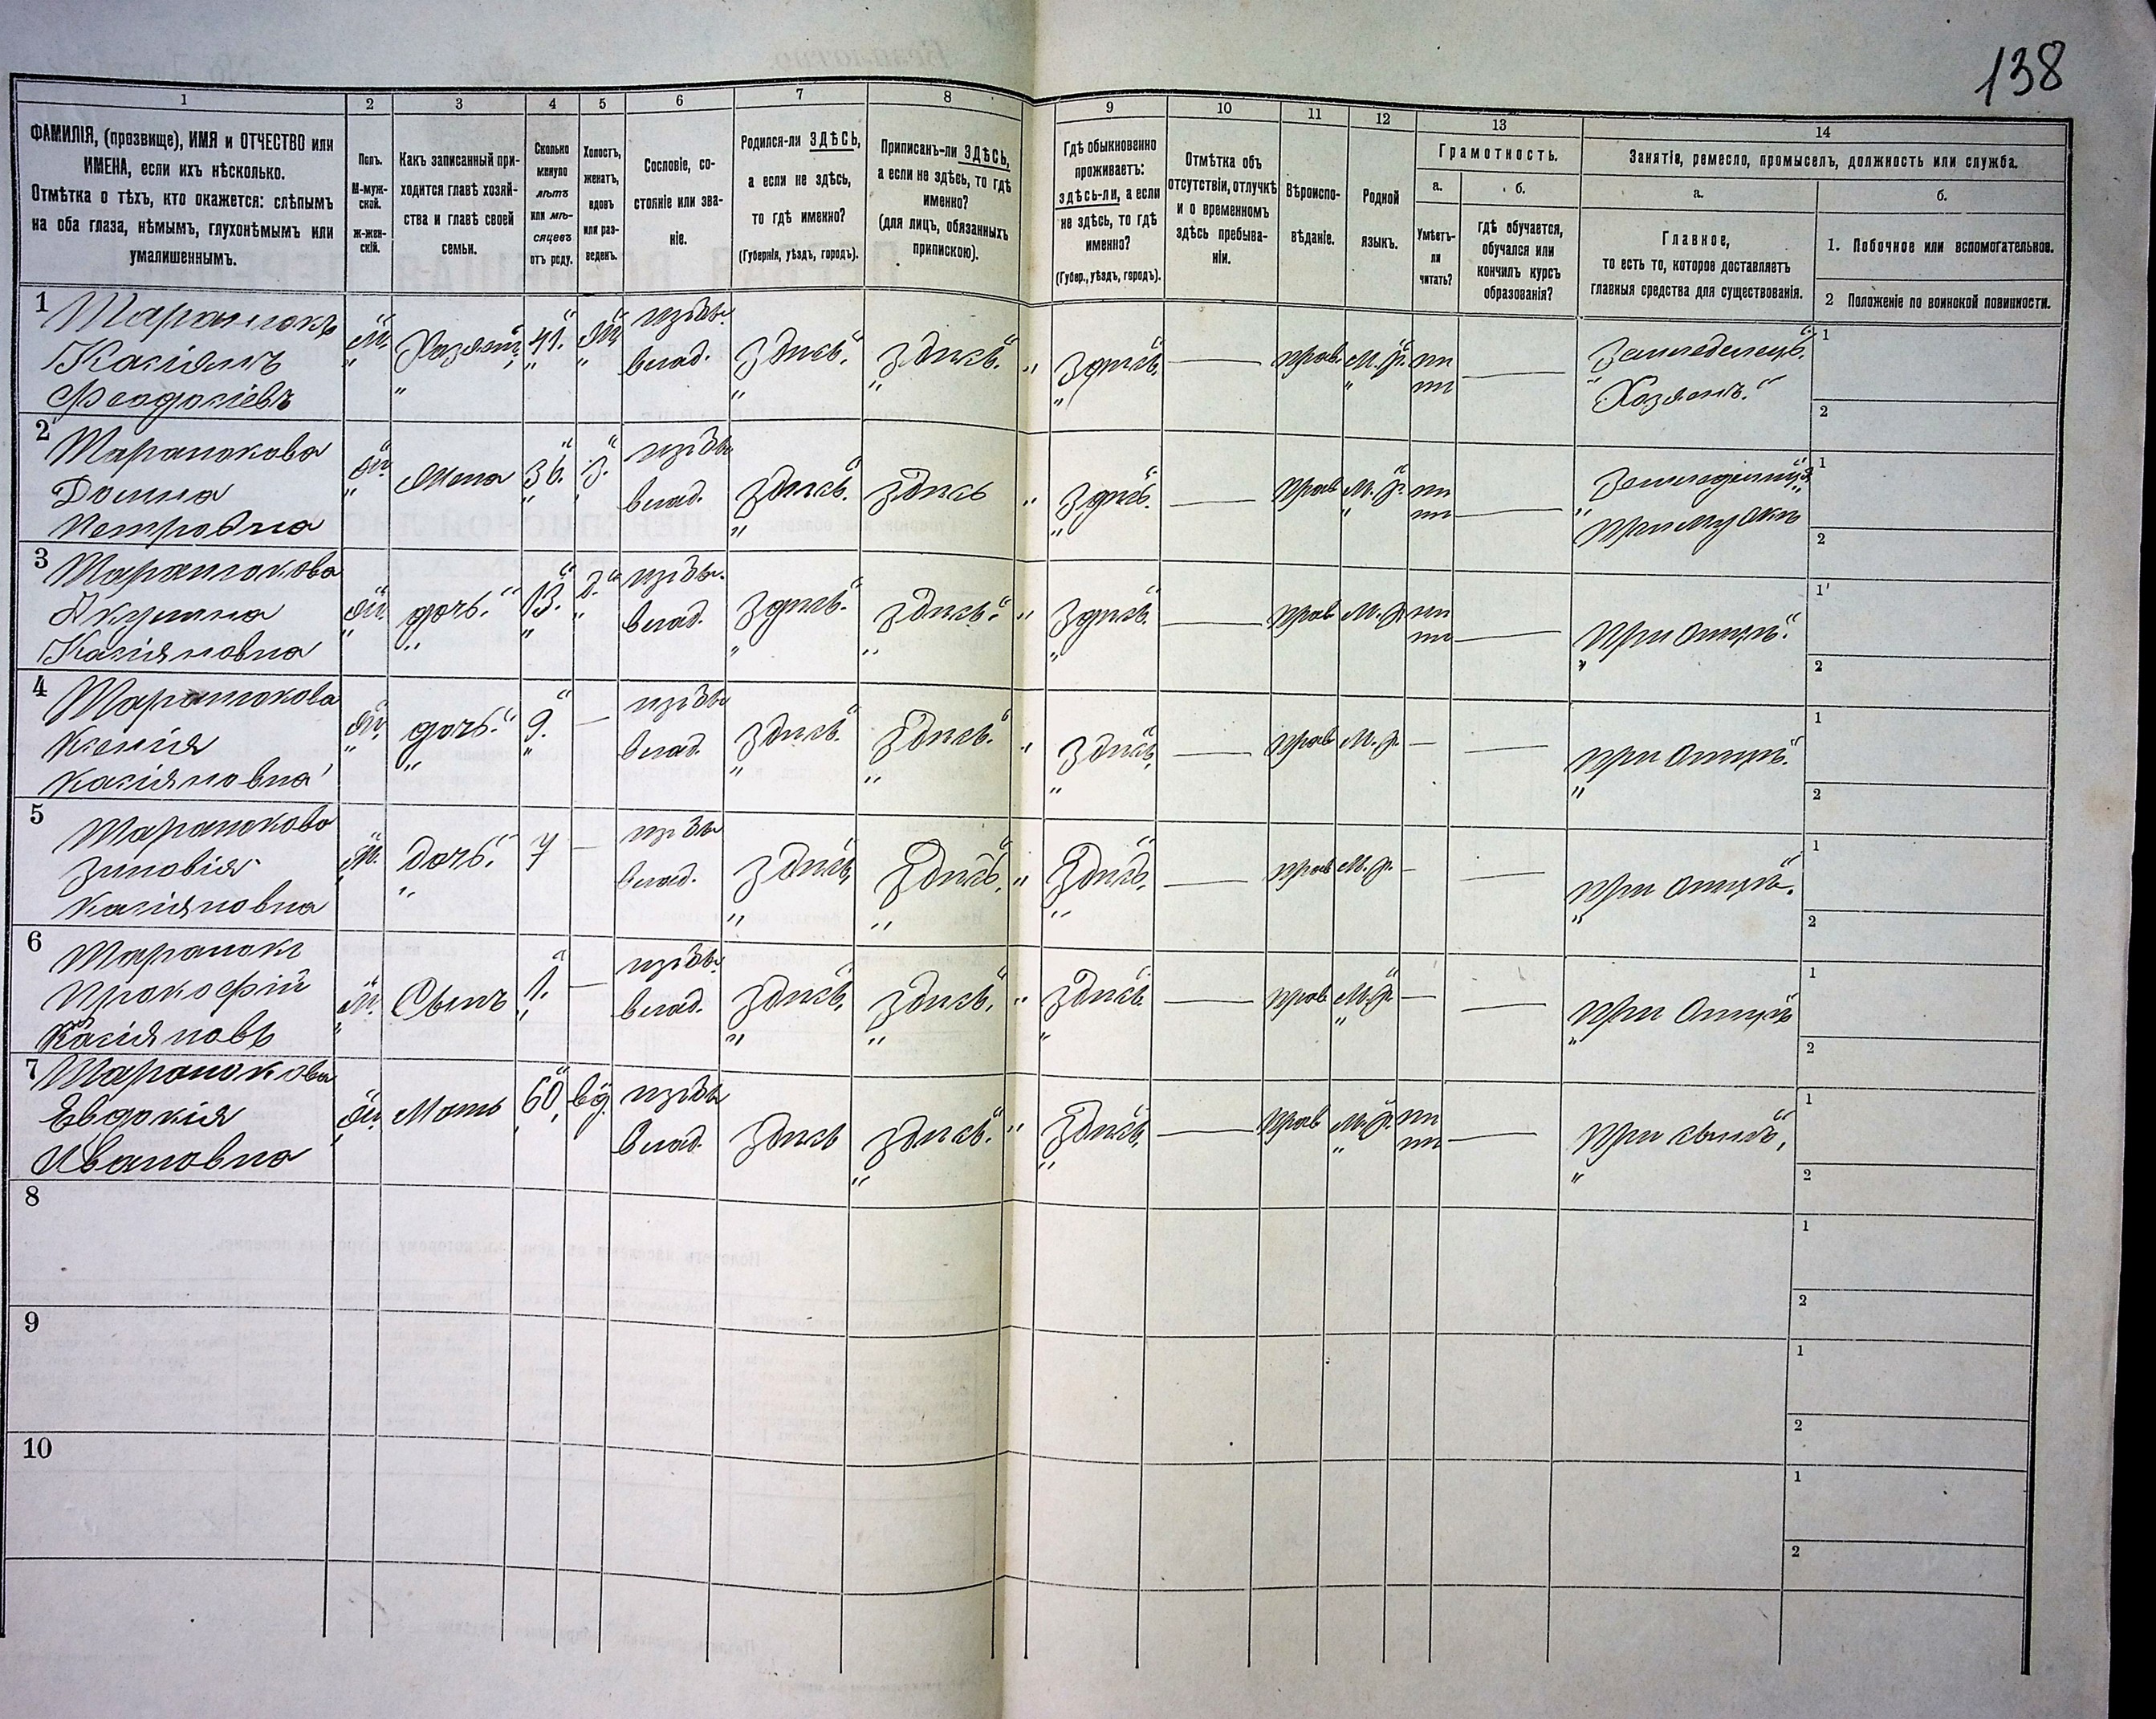 138
1 2 3 4 5 6 7 8 9 10 11 12 13 14
ФАМИЛІЯ, (прозвище), ИМЯ и ОТЧЕСТВО или
ИМЕНА, если ихъ нѣсколько.
Отмѣтка о тѣхъ, кто окажется: слѣпымъ
на оба глаза, нѣмымъ, глухонѣмымъ или
умалишеннымъ.
Полъ.
М-муж-
ской.
Ж-жен-
скій.
Какъ записанный при-
ходится главѣ хозяй-
ства и главѣ своей
семьи.
Сколько
минуло
лѣтъ
или мѣ-
сяцевъ
отъ роду.
Холостъ,
женатъ,
вдовъ
или раз-
веденъ.
Сословіе, со-
стояніе или зва-
ніе.
Родился-ли ЗДѢСЬ,
а если не здѣсь,
то гдѣ именно?
(Губернія, уѣздъ, городъ).
Приписанъ-ли ЗДѢСЬ,
а если не здѣсь, то гдѣ
именно?
(для лицъ, обязанныхъ
припискою).
Гдѣ обыкновенно
проживаетъ:
ЗДѢСЬ-ЛИ, а если
не здѣсь, то гдѣ
именно?
(Губер., уѣздъ, городъ).
Отмѣтка объ
отсутствіи, отлучкѣ
и о временномъ
здѣсь пребыва-
ніи.
Вѣроиспо-
вѣданіе.
Родной
языкъ.
Грамотность.
а. б.
Умѣетъ-
ли
читать?
гдѣ обучается,
обучался или
кончилъ курсъ
образованія?
Занятіе, ремесло, промыселъ, должность или служба.
а. б.
Главное,
то есть то, которое доставляетъ
главныя средства для существованія.
1. Побочное или вспомогательное.
2 Положеніе по воинской повинности.
1 Таранюкъ
Касіянъ
Феодосіевъ
М. Хозяинъ 41.
влад. здись здись здись прав. М. р. Земледелецъ
Хозяинъ
1
2
2 Таранюкова
Домна
Петровна
Жена 36.
влад. здись здись здись прав М. р.
При мужѣ
1
2
3 Таранюкова
Акулина
Касіяновна
дочь. 13.
влад. здись здись здись прав М. р. При отцѣ
1
2
4 Таранюкова
Ксенія
Касіяновна
дочь. 9. —
влад. здись здись здись — прав М. р. — — при отцѣ
1
2
5 Таранюкова
Зиновія
Касіяновна
дочь. 7 —
влад. здись здись здись — прав М. р. — — при отцѣ
1
2
6 Таранюкъ
Прокофій
Касіяновъ
М. Сынъ 1. —
влад. здись здись здись — прав М. р. — — при отцѣ
1
2
7 Таранюкова
Евдокія
Ивановна
Мать 60 вд.
влад. здись здись здись — прав М. р. — при сынѣ
1
2
8
1
2
9
1
2
10
1
2